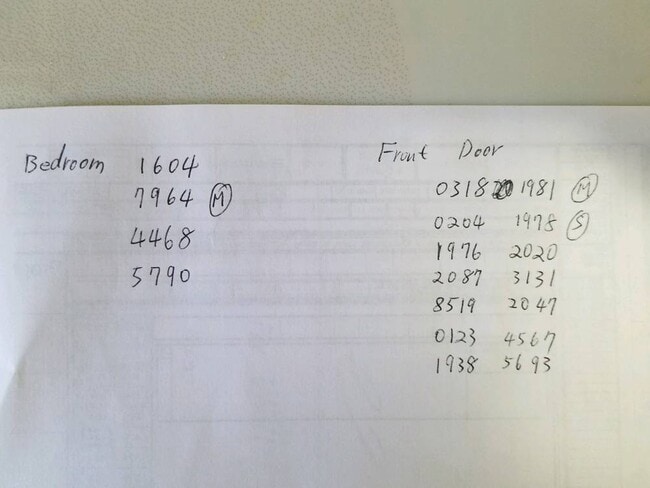 Bedroom 1604
7964 M
4468
5790
Front Door
0318 1981 M
0204 1978 S
1976 2020
2087 3131
8519 2047
0123 4567
1938 5693